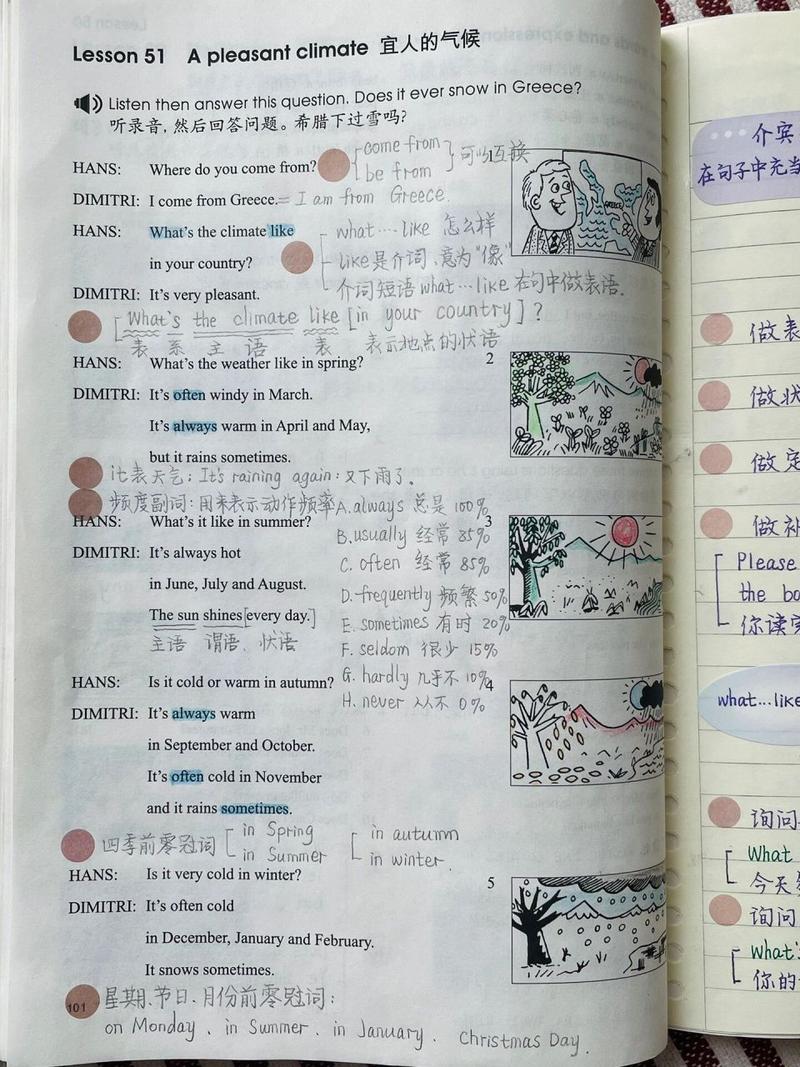 Lesson 51 A pleasant climate 宜人的气候
Listen then answer this question. Does it ever snow in Greece?
听录音, 然后回答问题。希腊下过雪吗?
HANS: Where do you come from? { come from be from } 可以互换
1
DIMITRI: I come from Greece. = I am from Greece.
GREECE
HANS: What's the climate like
in your country?
what…like 怎么样
like是介词, 意为"像"
介词短语what…like 在句中做表语.
DIMITRI: It's very pleasant.
[What's the climate like [in your country]?
表 系 主语 表 表示地点的状语
HANS: What's the weather like in spring?
2
DIMITRI: It's often windy in March.
It's always warm in April and May,
but it rains sometimes.
it表天气: It's raining again: 又下雨了.
频度副词: 用来表示动作频率
A. always 总是 100%
B. usually 经常 85%
C. often 经常 85%
D. frequently 频繁 50%
E. sometimes 有时 20%
F. seldom 很少 15%
G. hardly 几乎不 10%
H. never 从不 0%
HANS: What's it like in summer?
3
DIMITRI: It's always hot
in June, July and August.
The sun shines [every day.]
主语 谓语 状语
HANS: Is it cold or warm in autumn?
4
DIMITRI: It's always warm
in September and October.
It's often cold in November
and it rains sometimes.
四季前零冠词 [ in Spring in Summer [ in autumn in winter.
HANS: Is it very cold in winter?
5
DIMITRI: It's often cold
in December, January and February.
It snows sometimes.
101
星期、节日、月份前零冠词:
on Monday、in Summer、in January. Christmas Day.
介宾
在句子中充当
做表
做状
做定
做补
Please
the bo
你读完
what…like
询问
What
今天
询问
What's
你的